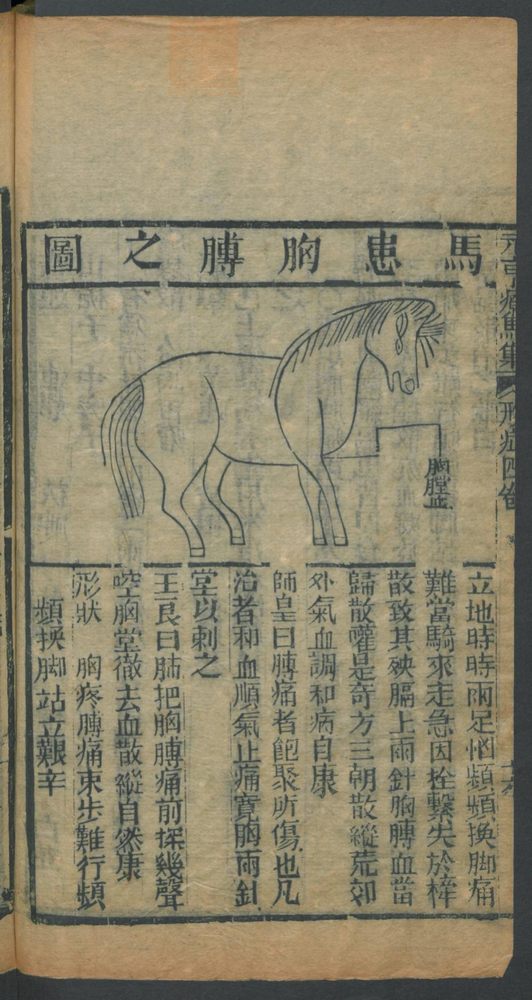 馬患胸膊之圖
胸膛血
立地時時兩足悩頻頻換脚痛
難當騎來走急因拴繫失於椽
散致其殃膈上兩針胸膊血當
歸散嚾是奇方三朝散縱荒郊
外氣血調和病自康
師皇曰膊痛者飽聚所傷也凡
治者和血順氣止痛寛胸兩針
堂以刺之
王良曰肺把胸膊痛前探幾聲
啌胸堂徹去血散縱自然康
形狀 胸疼膊痛束步難行頻
頻換脚站立艱辛
療馬集 形症四卷